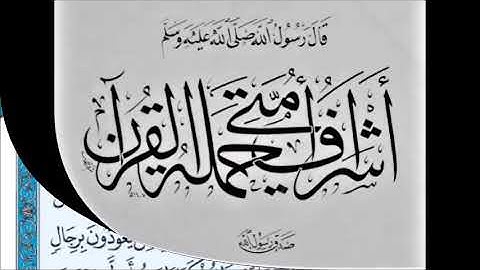 قَالَ رَسُولُ اللَّهِ صَلَّى اللَّهُ عَلَيْهِ وَسَلَّم
أَشْرَافُ أُمَّتِي حَمَلَةُ الْقُرْآنِ
صدق رسول الله
يَعُوذُونَ بِرِجَالٍ